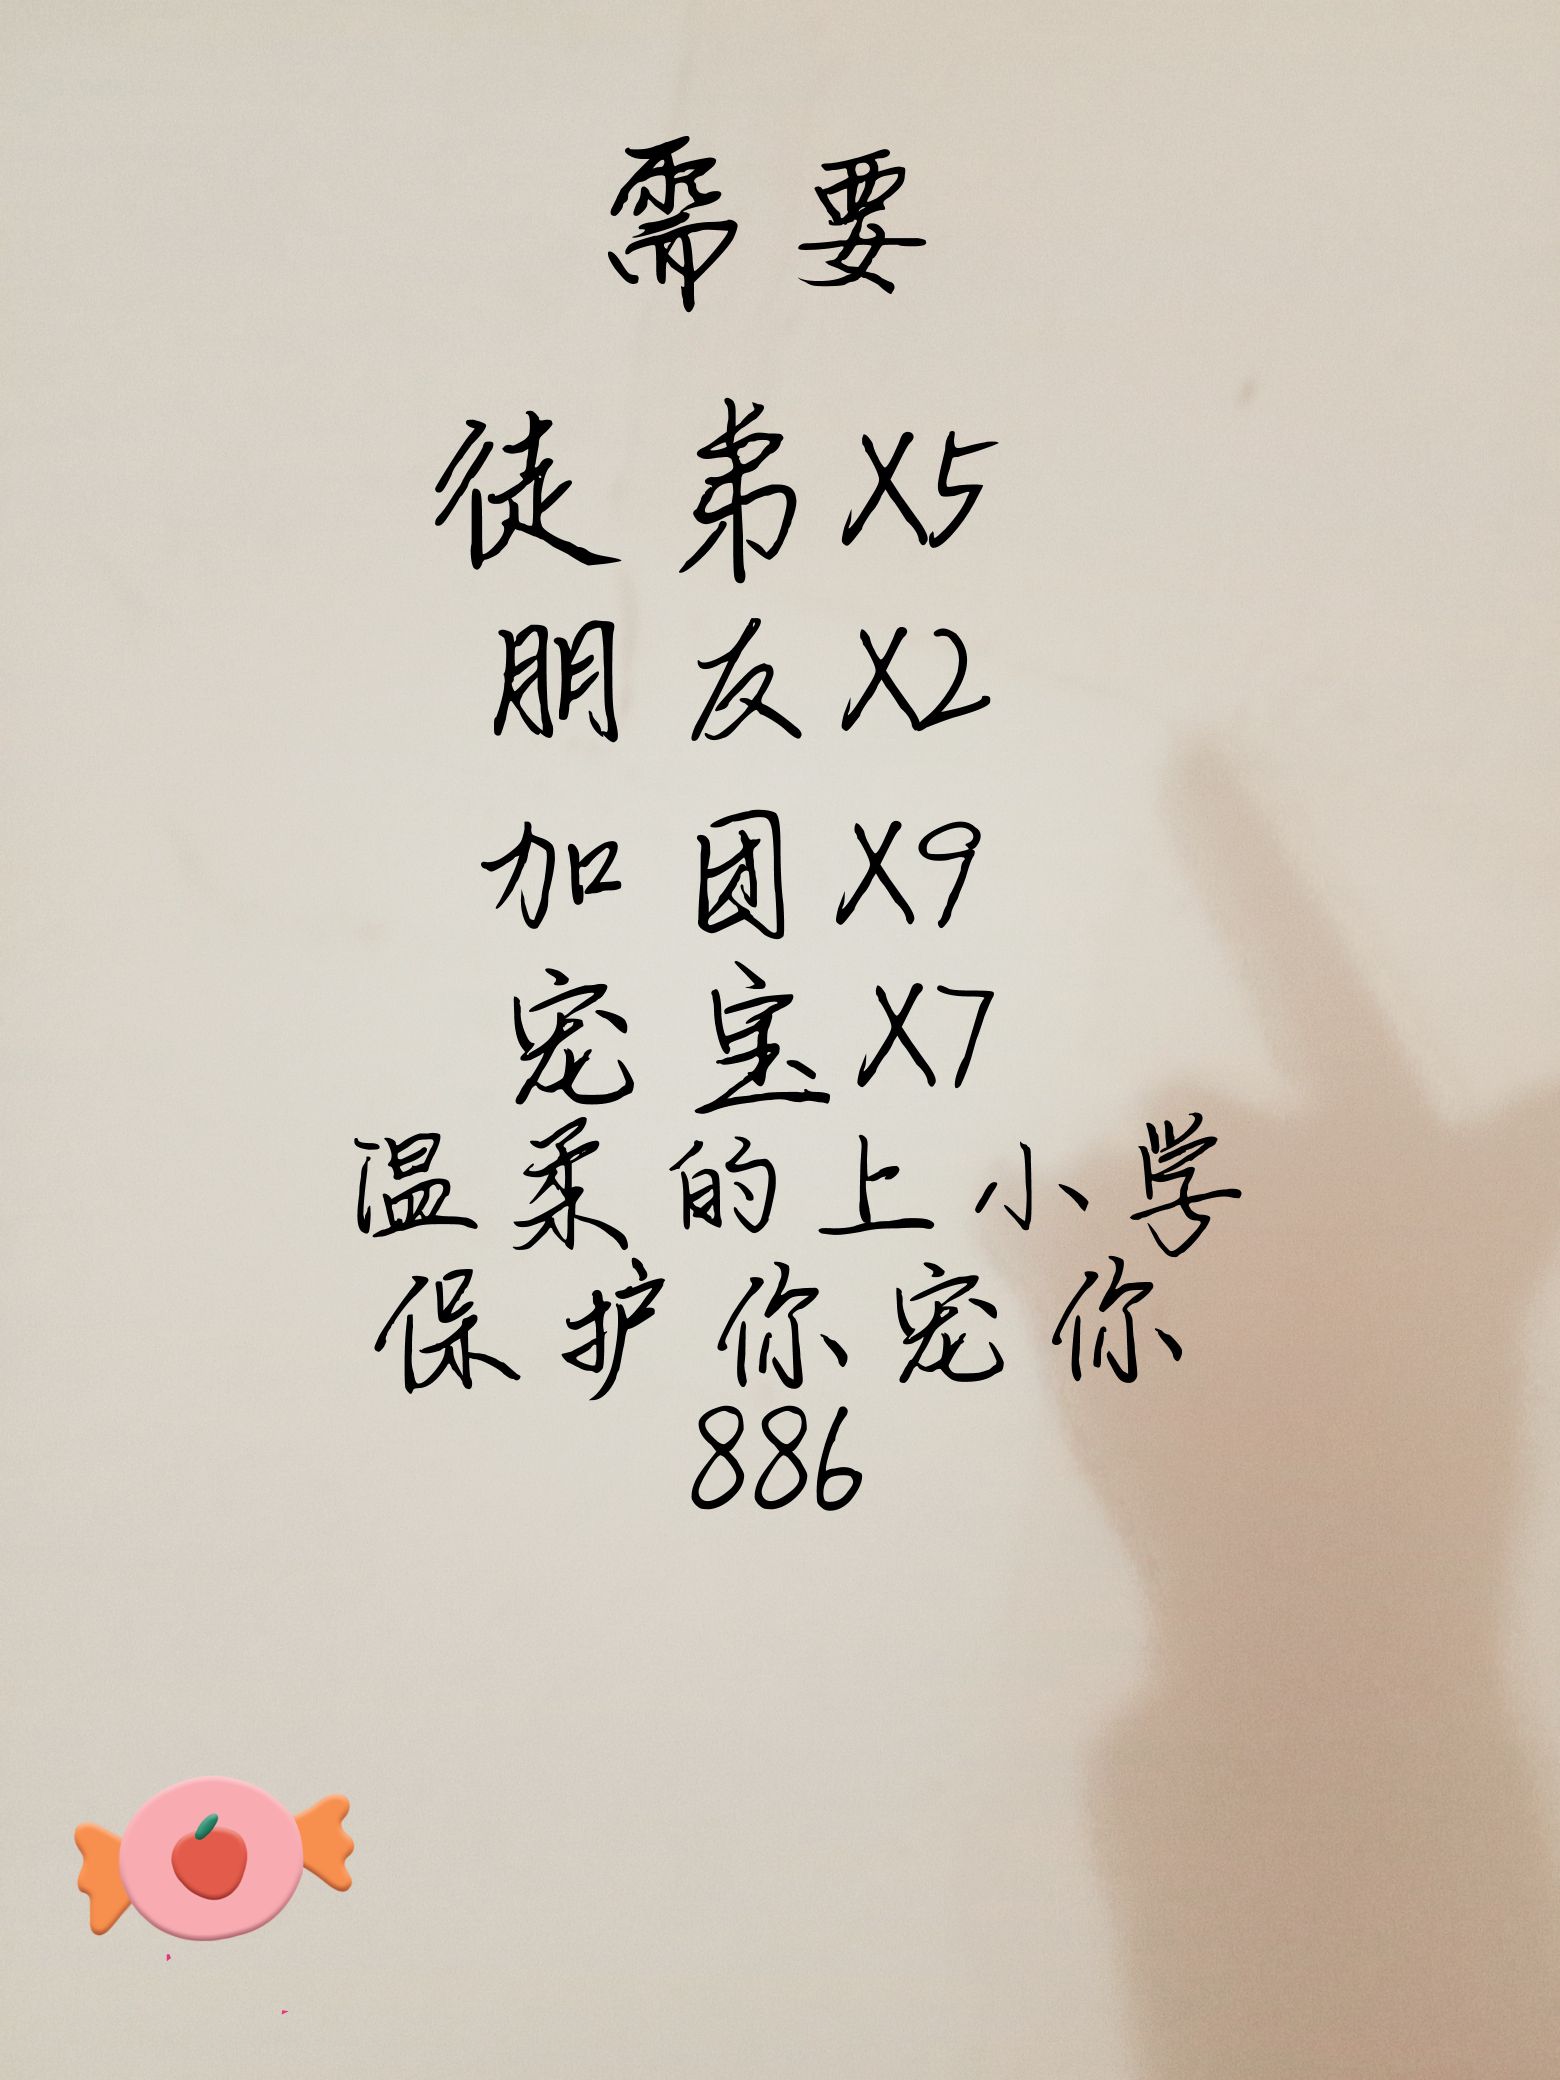 需要
徒弟X5
朋友X2
加团X9
宠宝X7
温柔的上小学
保护你宠你
886